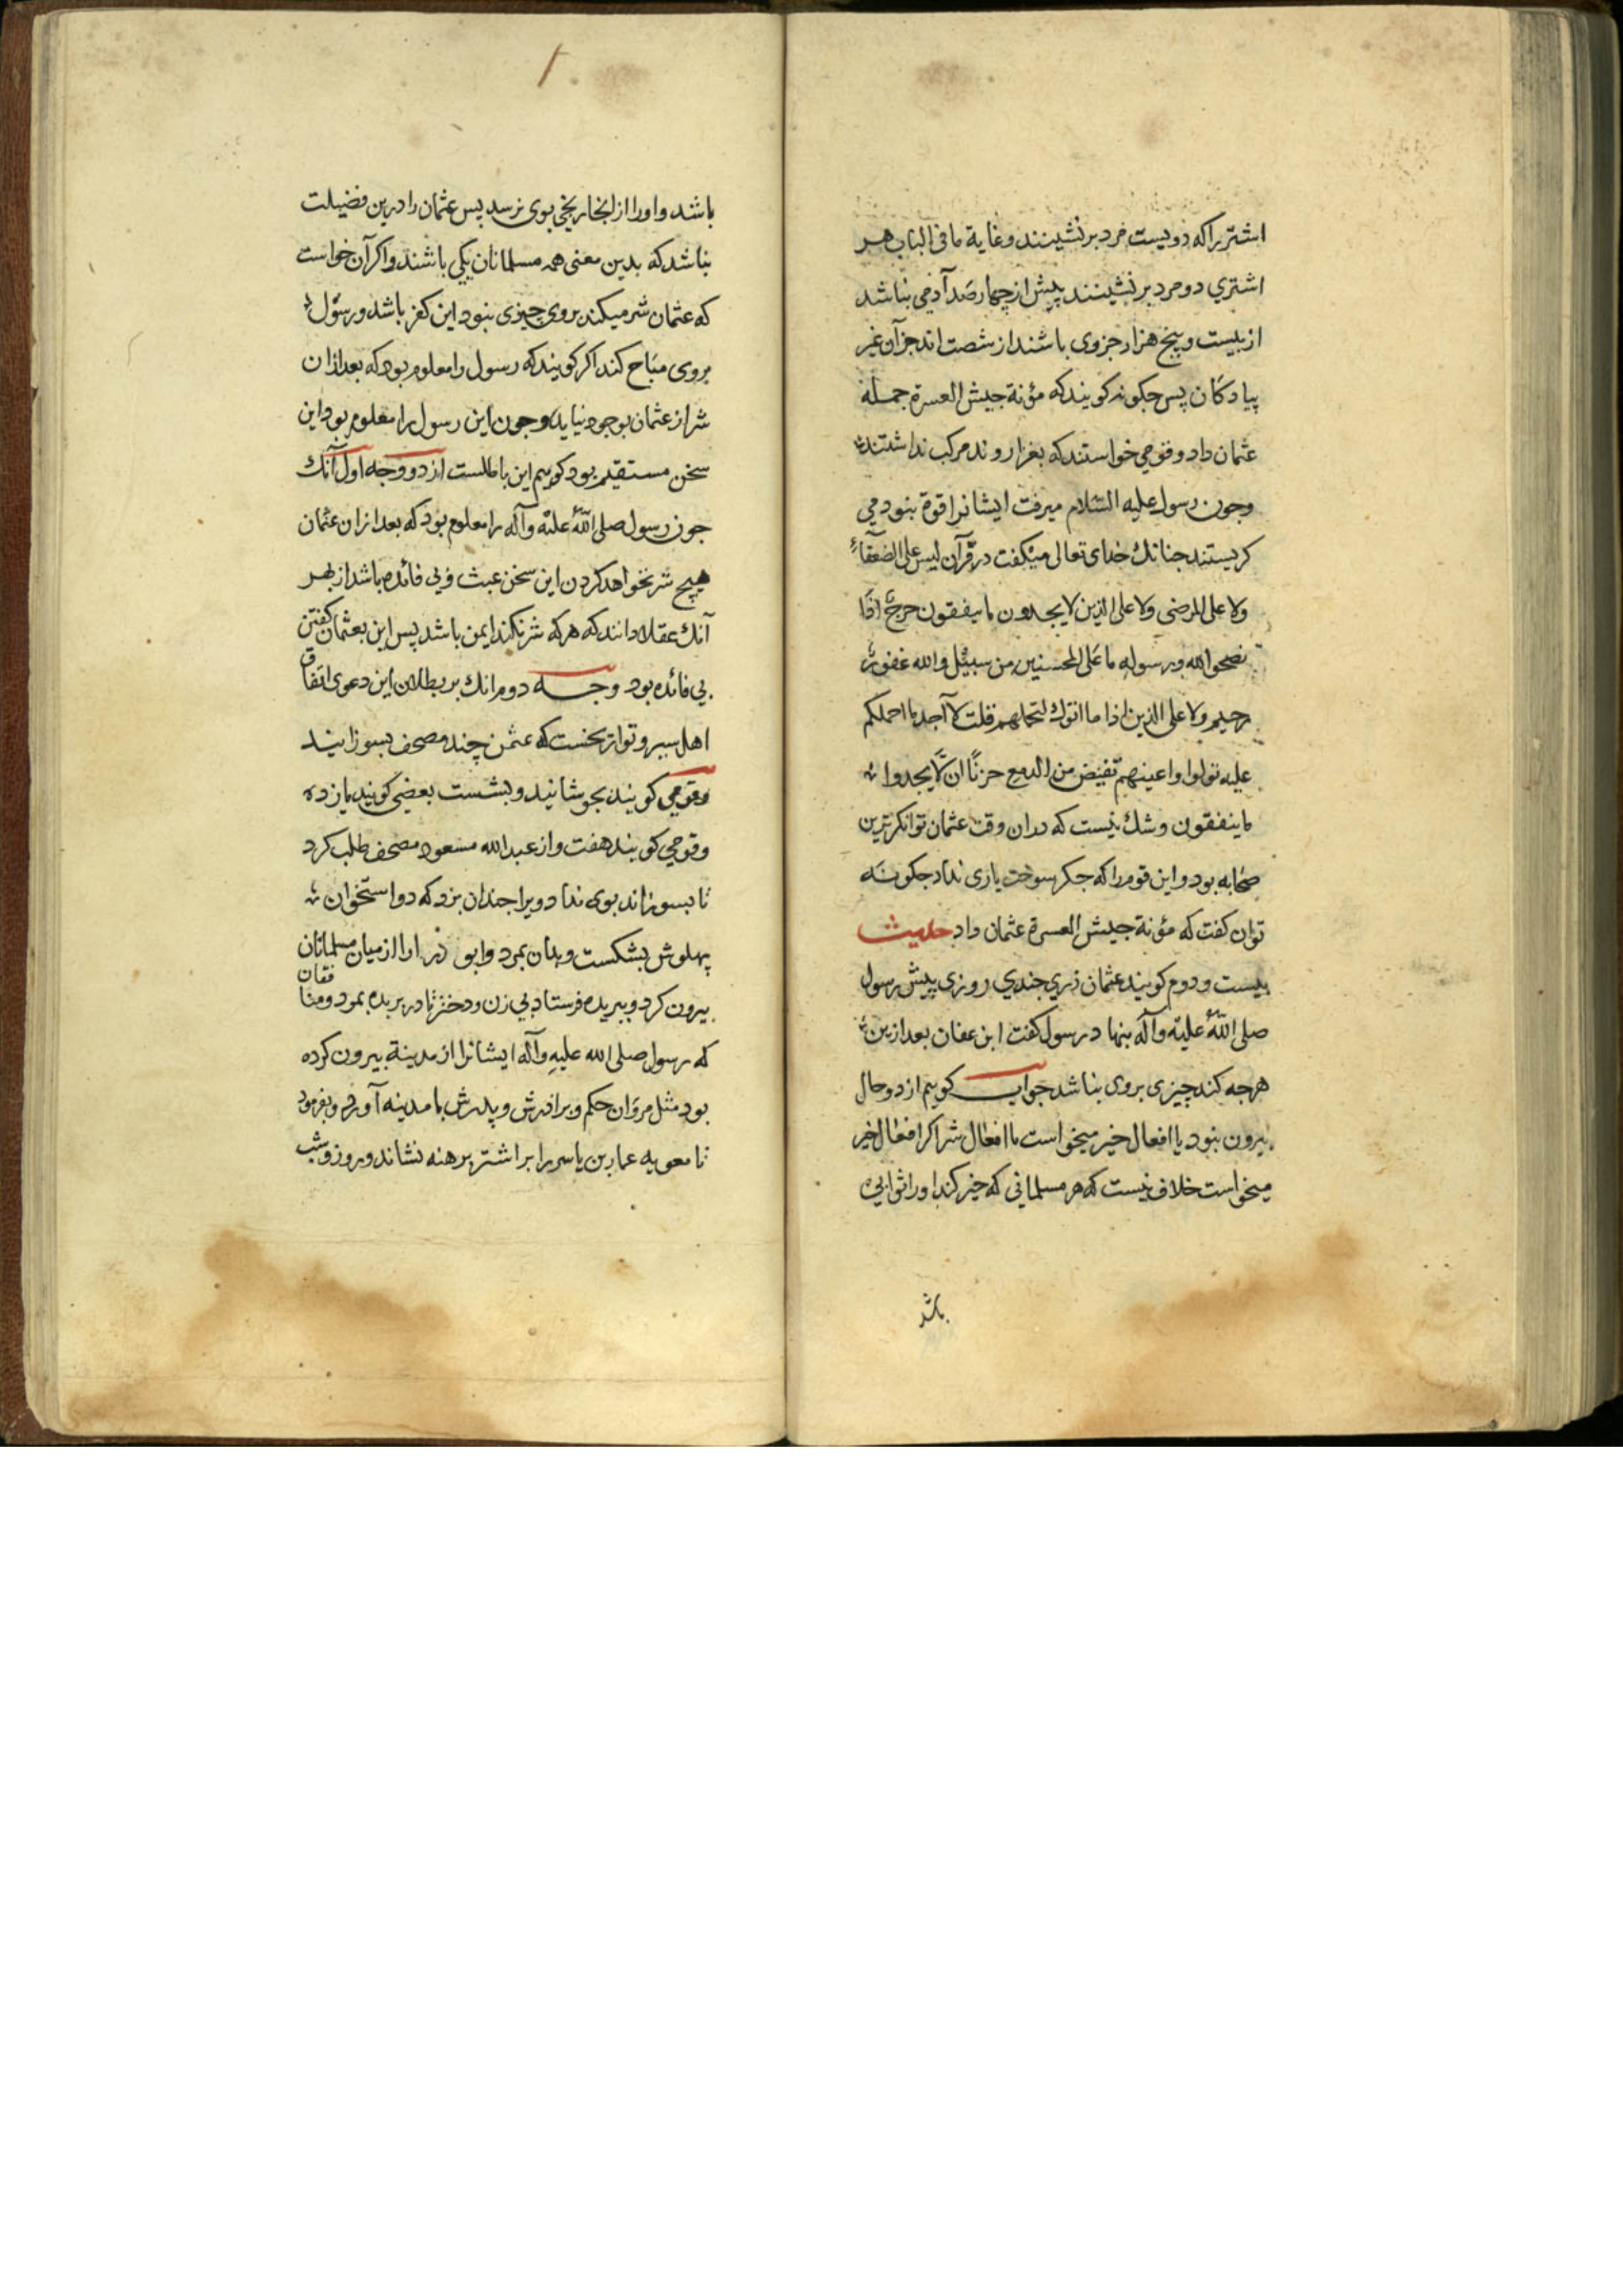 اشتر را که دویست مرد برنشینند و غایة ما فی الباب هر
اشتری دو مرد برنشینند پیش از چهار صد آدمی نباشد
از بیست و پنج هزار جزوی باشند از شصت اند جزآن غیر
پیادکان پس چکونه کویند که مؤنة جیش العسرة جمله
عثمان داد و قومی خواستند که بغزا روند مرکب نداشتند
وجون رسول علیه السّلام میرفت ایشانرا قوة نبود می
کریستند جنانك خدای تعالی میکفت در قرآن لیس علی الضعفاء
ولا علی المرضی ولا علی الذین لا یجدون ما ینفقون حرج اذا
نصحوا لله ورسوله ما علی المحسنین من سبیل والله غفور
رحیم ولا علی الذین اذا ما اتوك لتحملهم قلت لا آجد ما احملکم
علیه تولوا واعینهم تفیض من الدمع حزنًا انْ لّا یجدوا
ما ینفقون وشك نیست که دران وقت عثمان توانکرترین
صحابه بود و این قوم را که جکر سوخت یاری نداد جکونه
توان کفت که مؤنة جیش العسرة عثمان داد حدیث
بیست ودوم کویند عثمان زری جندی روزی پیش رسول
صلی اللّه علیه وآله بنهاد رسول کفت ابن عفان بعد ازین
هرجه کند چیزی بروی نباشد جواب کویم از دو حال
بیرون نبود یا افعال خیر میخواست یا افعال شر اکر افعال خیر
میخواست خلاف نیست که هر مسلمانی که خیر کند او را ثوابی
باشد
باشد و او را از انجا ریخی بوی نرسد پس عثمان را درین فضیلت
نباشد که بدین معنی همه مسلمانان یکی باشند و اکر آن خواست
که عثمان شر میکند بروی چیزی نبود این کفر باشد و رسول
بروی مباح کند اکر کویند که رسول را معلوم بود که بعد ازان
شر از عثمان بوجود نیاید وجون این رسول را معلوم بود این
سخن مستقیم بود کویم این باطلست از دو وجه اول آنك
جون رسول صلی اللّه علیه وآله را معلوم بود که بعد ازان عثمان
هیچ شر نخواهد کردن این سخن عبث و بی فائده باشد از بهر
آنك عقلا دانند که هر که شر نکند ایمن باشد پس این بعثمان کفتن
بی فائده بود وجه دوم انك بر بطلان این دعوی اتفاق
اهل سیر و تواریخست که عثمن چند مصحف بسوزانید
وقومی کویند بجوشانید و بشست بعضی کویند یازده
وقومی کویند هفت و از عبدالله مسعود مصحف طلب کرد
تا بسوزاند بوی نداد ویرا جندان بزد که دو استخوان
پهلوش بشکست و بدان بمرد و ابو ذر را از میان مسلمانان
بیرون کرد و بربده فرستاد بی زن و دختر تا در بربده بمرد و منافقان
که رسول صلی الله علیهِ وآله ایشانرا از مدینة بیرون کرده
بود مثل مروان حکم و برادرش و پدرش با مدینه آورد و بفرمود
تا معویه عمار بن یاسر را بر اشتر برهنه نشاند و روز و شب